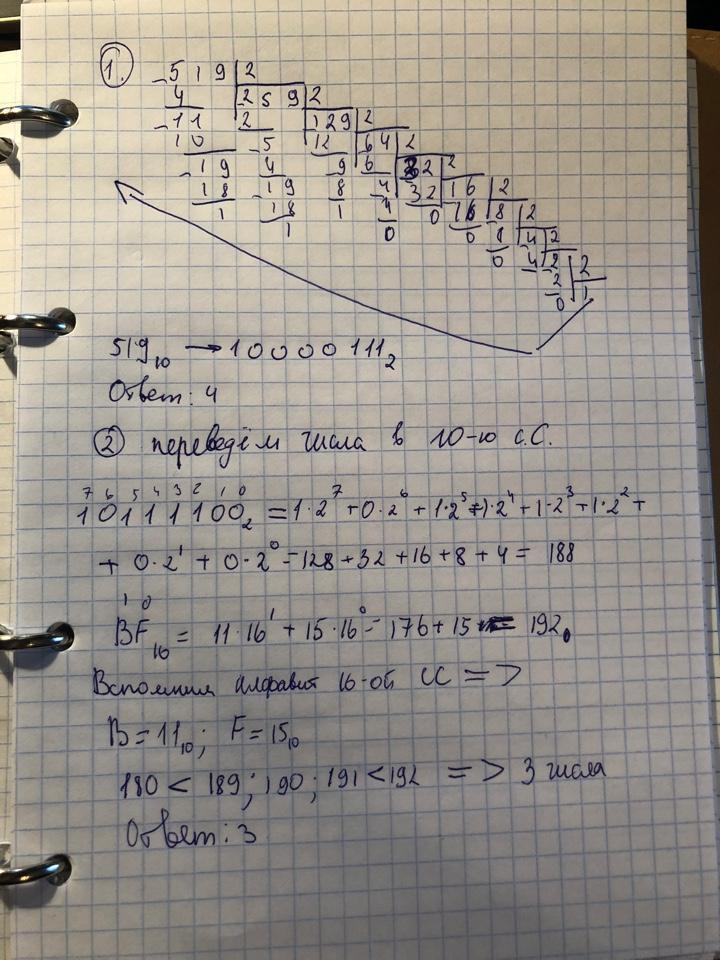 1.
519 | 2
4 259 | 2
11 2 129 | 2
10 5 12 64 | 2
19 4 9 6 32 | 2
18 19 8 4 32 16 | 2
1 18 1 4 0 16 8 | 2
1 0 0 8 4 | 2
0 4 2 | 2
2 1
0
519₁₀ → 10000111₂
Ответ: 4
2 переведём числа в 10-ю с.С.
7 6 5 4 3 2 1 0
10111100₂ = 1·2⁷ + 0·2⁶ + 1·2⁵ + 1·2⁴ + 1·2³ + 1·2² +
+ 0·2¹ + 0·2⁰ = 128 + 32 + 16 + 8 + 4 = 188
1 0
BF₁₆ = 11·16¹ + 15·16⁰ = 176 + 15 = 192.
Вспомним алфавит 16-ой СС =>
B = 11₁₀; F = 15₁₀
180 < 189; 190; 191 < 192 => 3 числа
Ответ: 3